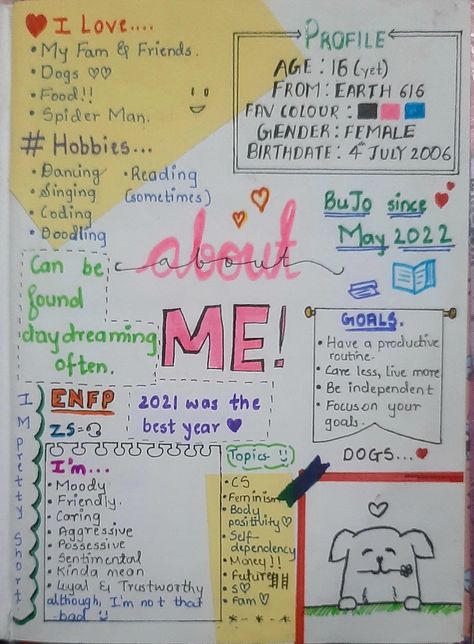 I Love....
• My Fam & Friends.
• Dogs ♡♡
• Food!!
• Spider Man.
# Hobbies...
• Dancing
• Singing
• Coding
• Doodling
• Reading
(sometimes)
PROFILE
AGE : 16 (yet)
FROM : EARTH 616
FAV COLOUR :
GENDER : FEMALE
BIRTHDATE : 4th JULY 2006
BuJo since
May 2022
about
about
ME!
Can be
found
daydreaming
often.
GOALS.
• Have a productive
routine.
• Care less, Live more
• Be independent
• Focus on your
goals.
ENFP
2021 was the
best year
I'M Pretty Short
I'm...
• Moody
• Friendly.
• Caring
• Aggressive
• Possessive
• Sentimental
• Kinda mean
• Loyal & Trustworthy
although, I'm not that
bad
Topics
• CS
• Feminism
• Body
positivity ♡
• Self-
dependency
• Money!!
• Future
• S♡
• Fam ♡
DOGS...